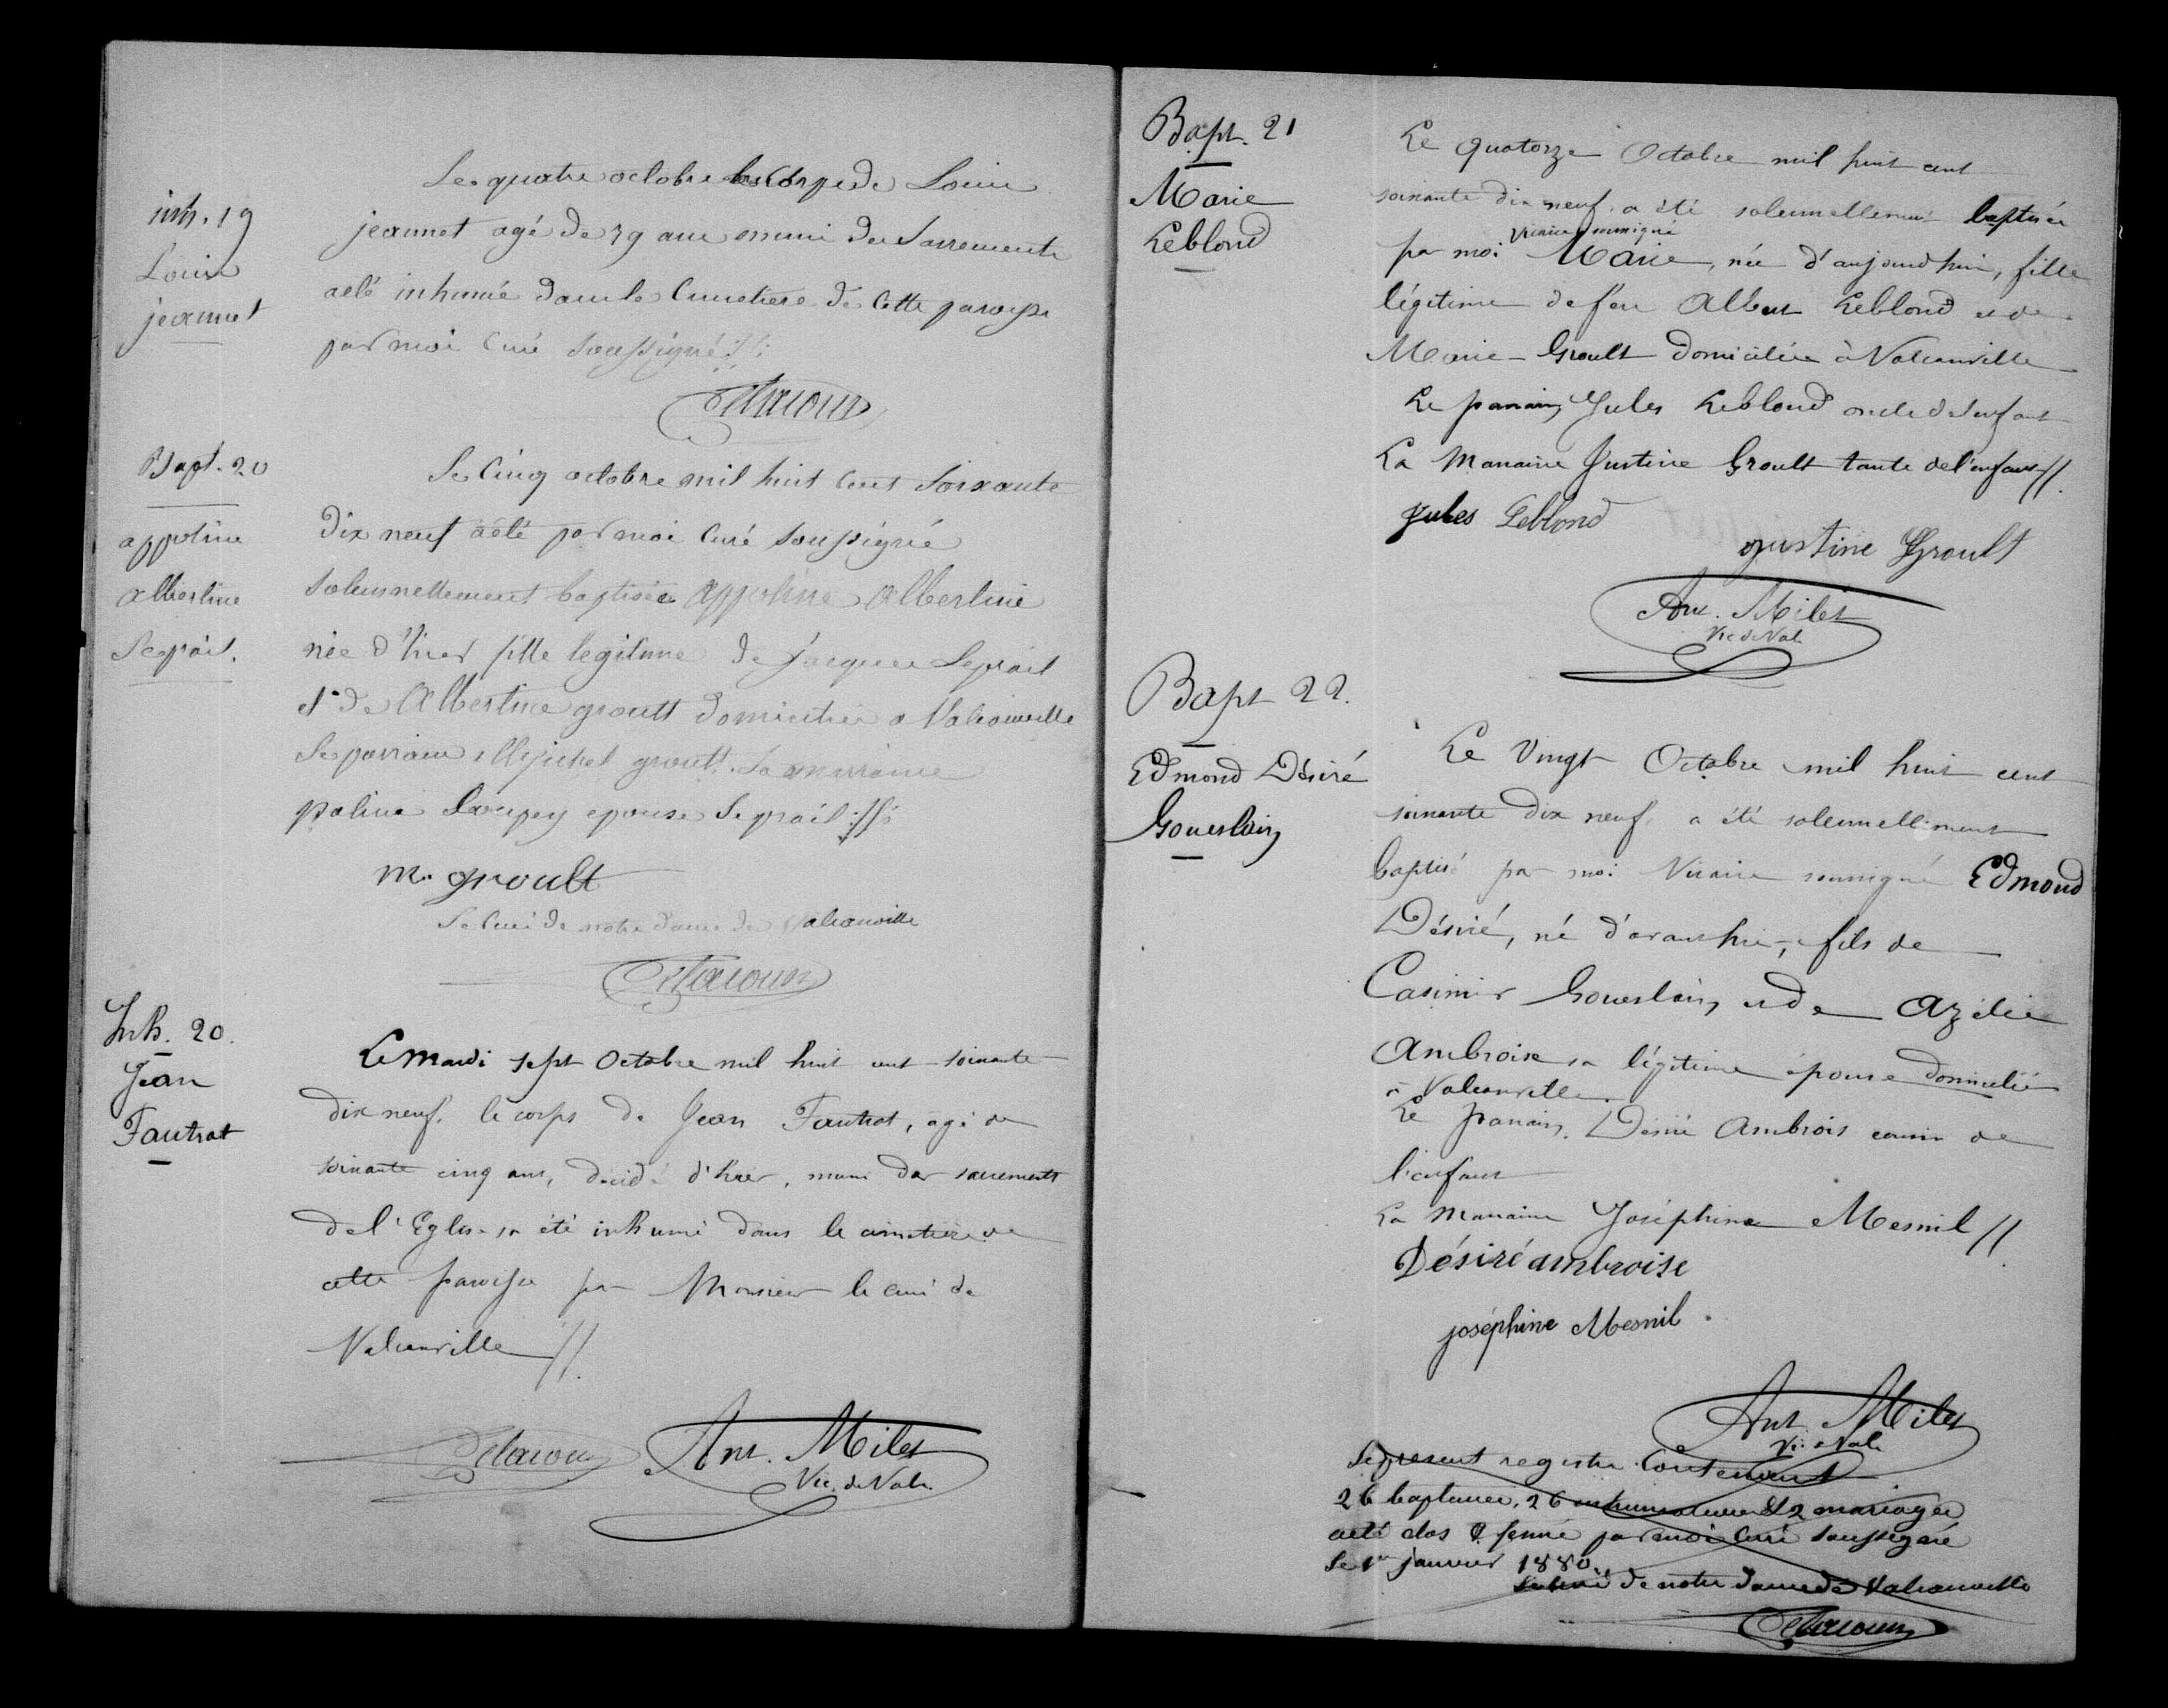 inh. 19
Louis
jeannet
Le quatre octobre le Corps de Louis
jeannet agé de 79 ans muni des Sacrements
aété inhumé dans le Cimetiere de Cette paroisse
par moi Curé Soussigné
Bapt. 20
appoline
albertine
Lepoil.
Le Cinq octobre mil huit Cent Soixante
Dix neuf aété par moi Curé Soussigné
Solennellement baptisée appoline albertine
née d'hier fille legitime de jacques
et de albertine groult Domiciliés a Valcanville
Le parrain Michel groult. La marraine
epouse
m. groult
Le Curé de notre Dame de Valcanville
Inh. 20.
Jean
Fautrat
Le Mardi sept Octobre mil huit cent soixante
dix neuf, le corps de Jean Fautrat, agé de
soixante cinq ans, décidé d'hier, muni des sacrements
de l'Eglise a été inhumé dans le cimetière de
cette paroisse par Monsieur le curé de
Valcanville //.
Ant. Milet
Vic. de Valc.
Bapt. 21
Marie
Leblond
Le quatorze Octobre mil huit cent
soixante dix neuf, a été solennellement baptisée
Vicaire soussigné
par moi Marie, née d'aujourd'hui, fille
légitime de feu Albert Leblond et de
Marie Groult domiciliée à Valcanville
Le parrain Jules Leblond oncle de l'enfant
La Marraine Justine Groult tante de l'enfant //.
jules Leblond
justine Groult
Ant. Milet
Vic de Val.
Bapt 22.
Edmond Désiré
Gouerlain
Le Vingt Octobre mil huit cent
soixante dix neuf, a été solennellement
baptisé par moi Vicaire soussigné Edmond
Désiré, né d'avant hier, fils de
Casimir Gouerlain et de Azélie
Ambroise sa légitime épouse domiciliés
à Valcanville.
Le parrain, Désiré Ambrois cousin de
l'enfant
La Marraine Joséphine Mesnil //.
Désiré ambroise
joséphine Mesnil.
Ant. Milet
Vic de Val.
Le present registre Contenant
26 baptemes, 26 inhumations & 2 mariages
aété clos & fermé par moi Curé soussigné
Le 1er janvier 1880.
Le Curé de notre Dame de Valcanville